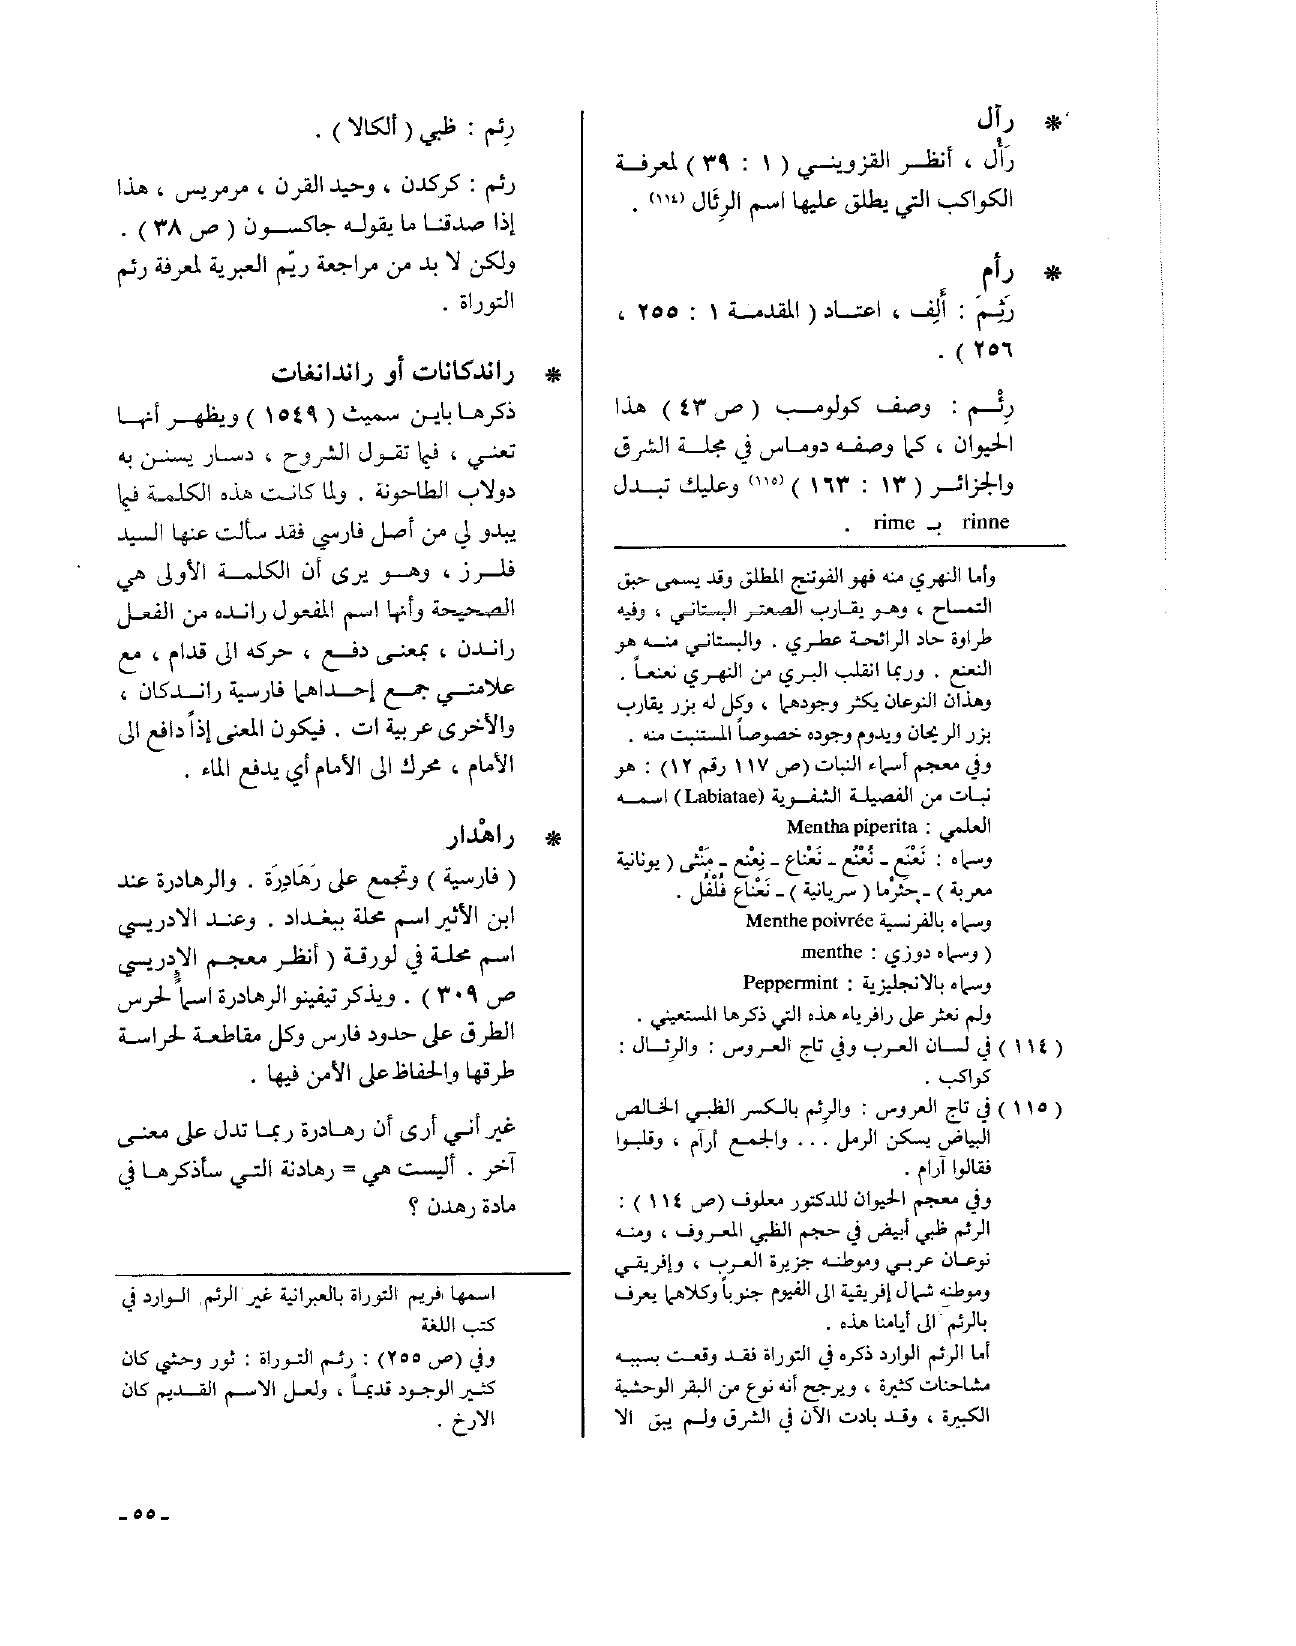 * رأل
رَأْل ، أنظر القزويني ( ١ : ٣٩ ) لمعرفة
الكواكب التي يطلق عليها اسم الرِئَال (١١٤) .
* رأم
رَئِمَ : أَلِف ، اعتاد ( المقدمة ١ : ٢٥٥ ،
٢٥٦ ) .
رِئْم : وصف كولومب ( ص ٤٣ ) هذا
الحيوان ، كما وصفه دوماس في مجلة الشرق
والجزائر ( ١٣ : ١٦٣ ) (١١٥) وعليك تبدل
rinne بـ rime .
وأما النهري منه فهو الفوتنج المطلق وقد يسمى حبق
التمساح ، وهو يقارب الصعتر البستاني ، وفيه
طراوة حاد الرائحة عطري . والبستاني منه هو
النعنع . وربما انقلب البري من النهري نعنعاً .
وهذان النوعان يكثر وجودهما ، وكل له بزر يقارب
بزر الريحان ويدوم وجوده خصوصاً المستنبت منه .
وفي معجم أسماء النبات (ص ١١٧ رقم ١٢) : هو
نبات من الفصيلة الشفوية (Labiatae) اسمه
العلمي : Mentha piperita
وسماه : نَعْنَع - نُعْنُع - نَعْنَاع - نِعْنِع - مِنْثَى ( يونانية
معربة ) - حَثَرْما ( سريانية ) - نَعْنَاع فُلْفُل .
وسماه بالفرنسية Menthe poivrée
( وسماه دوزي : menthe
وسماه بالانجليزية : Peppermint
ولم نعثر على رافرياء هذه التي ذكرها المستعيني .
( ١١٤ ) في لسان العرب وفي تاج العروس : والرئال :
كواكب .
( ١١٥ ) في تاج العروس : والرِئم بالكسر الظبي الخالص
البياض يسكن الرمل ... والجمع أرآم ، وقلبوا
فقالوا آرام .
وفي معجم الحيوان للدكتور معلوف (ص ١١٤ ) :
الرئم ظبي أبيض في حجم الظبي المعروف ، ومنه
نوعان عربي وموطنه جزيرة العرب ، وإفريقي
وموطنه شمال إفريقية الى الفيوم جنوباً وكلاهما يعرف
بالرئم الى أيامنا هذه .
أما الرئم الوارد ذكره في التوراة فقد وقعت بسببه
مشاحنات كثيرة ، ويرجح أنه نوع من البقر الوحشية
الكبيرة ، وقد بادت الآن في الشرق ولم يبق الا
رِئم : ظبي ( ألكالا ) .
رئم : كركدن ، وحيد القرن ، مرمريس ، هذا
إذا صدقنا ما يقوله جاكسون ( ص ٣٨ ) .
ولكن لا بد من مراجعة ريّم العبرية لمعرفة رئم
التوراة .
* راندكانات أو راندانغات
ذكرها باين سميث ( ١٥٤٩ ) ويظهر أنها
تعني ، فيما تقول الشروح ، دسار يسنن به
دولاب الطاحونة . ولما كانت هذه الكلمة فيما
يبدو لي من أصل فارسي فقد سألت عنها السيد
فلرز ، وهو يرى أن الكلمة الأولى هي
الصحيحة وأنها اسم المفعول رانده من الفعل
راندن ، بمعنى دفع ، حركه الى قدام ، مع
علامتي جمع إحداهما فارسية راندكان ،
والأخرى عربية ات . فيكون المعنى إذاً دافع الى
الأمام ، محرك الى الأمام أي يدفع الماء .
* راهْدار
( فارسية ) وتجمع على رَهَادِرَة . والرهادرة عند
ابن الأثير اسم محلة ببغداد . وعند الادريسي
اسم محلة في لورقة ( أنظر معجم الإدريسي
ص ٣٠٩ ) . ويذكر تيفينو الرهادرة اسماً لحرس
الطرق على حدود فارس وكل مقاطعة لحراسة
طرقها والحفاظ على الأمن فيها .
غير أني أرى أن رهادرة ربما تدل على معنى
آخر . أليست هي = رهادنة التي سأذكرها في
مادة رهدن ؟
اسمها فريم التوراة بالعبرانية غير الرئم الوارد في
كتب اللغة
وفي (ص ٢٥٥) : رئم التوراة : ثور وحشي كان
كثير الوجود قديماً ، ولعل الاسم القديم كان
الارخ .
- ٥٥ -